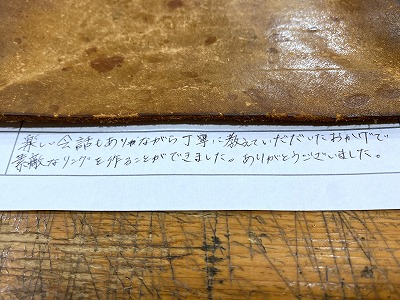 楽しい会話もありながら丁寧に教えていただいたおかげで
素敵なリングを作ることができました。ありがとうございました。